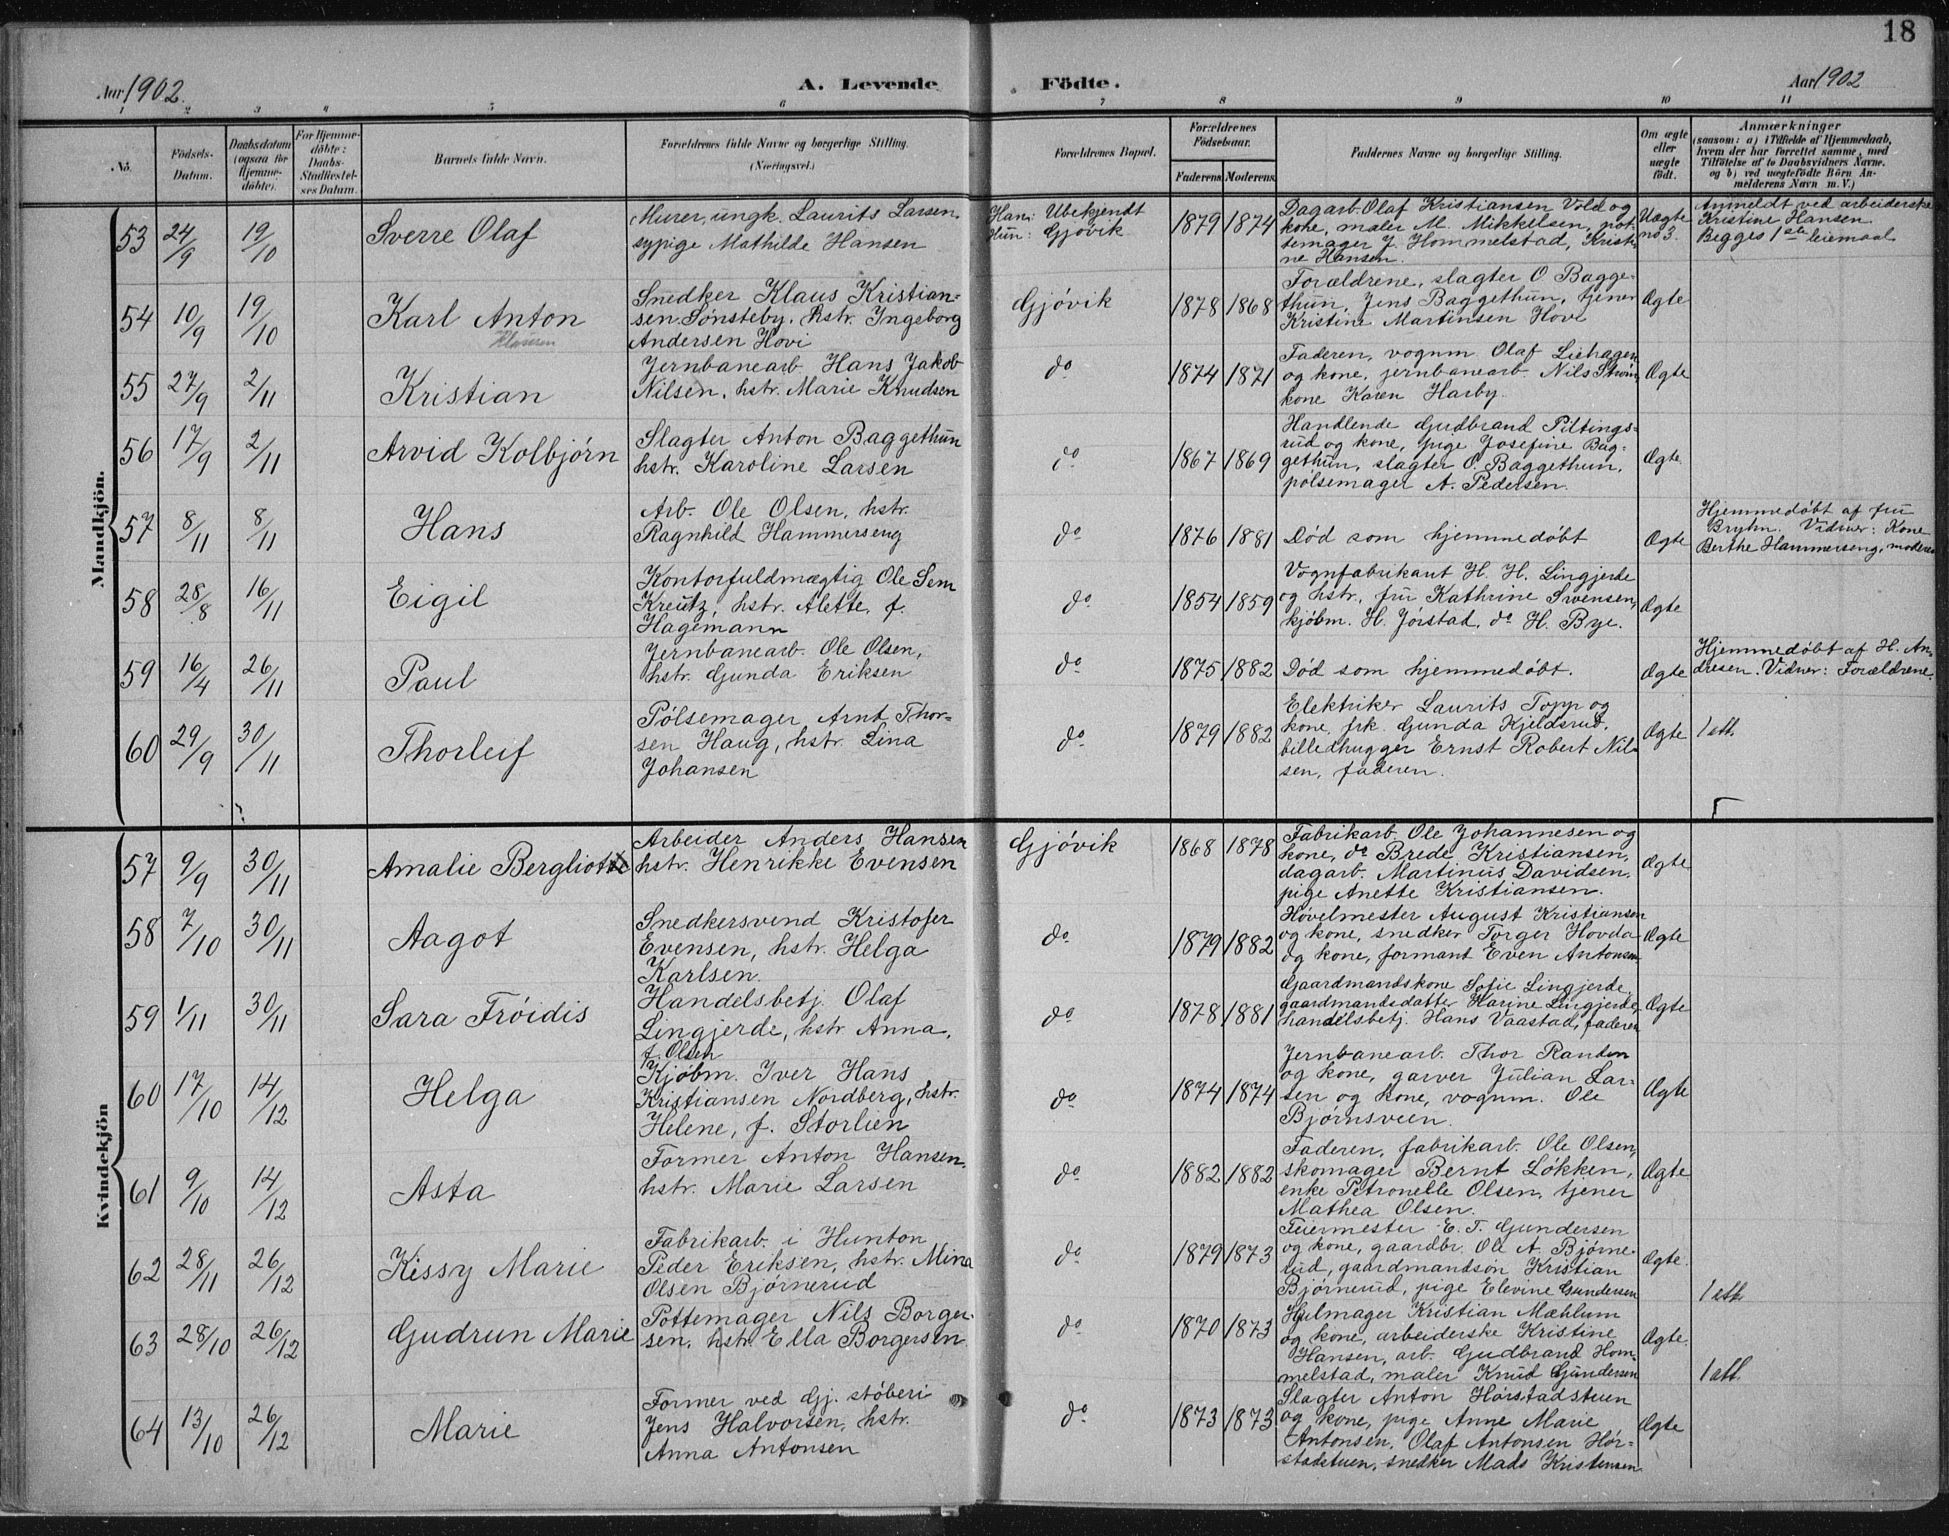 18
Aar 1902.
A. Levende
Födte.
Aar 1902
1 2 3 4 5 6 7 8 9 10 11
No.
Födsels-
Datum.
Daabsdatum
(ogsaa for
Hjemme-
döbte).
For Hjemme-
döbte:
Daabs-
Stadfæstel-
ses Datum.
Barnets fulde Navn.
Forældrenes fulde Navne og borgerlige Stilling.
(Næringsvei.)
Forældrenes Bopæl.
Forældrenes
Födselsaar.
Faderens. Moderens.
Faddernes Navne og borgerlige Stilling.
Om ægte
eller
uægte
födt.
Anmærkninger
(saasom: a) i Tilfælde af Hjemmedaab,
hvem der har forrettet samme, med
Tilföielse af to Daabsvidners Navne.
og b) ved uægtefödte Börn An-
melderens Navn m. V.)
Mandkjön.
53 24/9 19/10 Sverre Olaf
Murer, ungk. Laurits Larsen.
sypige Mathilde Hansen
Han: Ubekjendt
Hun: Gjøvik
1879 1874
Dagarb. Olaf Kristiansen Vold og
kone, maler M. Mikkelsen, pot-
temager J. Hommelstad, Kristi-
ne Hansen.
Uægte
no 3.
Anmeldt ved arbeiderske
Kristine Hansen.
Begges 1ste leiemaal
54 10/9 19/10 Karl Anton
Klausen
Snedker Klaus Kristian-
sen Sønsteby. hstr. Ingeborg
Andersen Hovi
Gjøvik
1878 1868
Forældrene, slagter O Bagge-
thun, Jens Baggethun, tjener
Kristine Martinsen Hovi
Ægte
55 27/9 2/11 Kristian
Jernbanearb Hans Jakob
Nilsen, hstr. Marie Knudsen
do
1874 1871
Faderen, vognm Olaf Liehagen
og kone, jernbanearb Nils Strøm,
kone Karen Harby.
Ægte
56 17/9 2/11 Arvid Kolbjørn
Slagter Anton Baggethun
hstr. Karoline Larsen
do
1867 1869
Handlende Gudbrand Piltings-
rud og kone, pige Josefine Bag-
gethun, slagter O. Baggethun,
pølsemager A. Pedersen.
Ægte.
57 8/11 8/11 Hans
Arb. Ole Olsen, hstr.
Ragnhild Hammerseng
do
1876 1881
Død som hjemmedøbt
Ægte
Hjemmedøbt af fru
Bryhn. Vidner: Kone
Berthe Hammerseng, moderen
58 28/8 16/11 Eigil
Kontorfuldmægtig Ole Sem
Kreutz, hstr. Alette, f.
Hagemann
do
1854 1859
Vognfabrikant H. H. Lingjerde
og hstr, fru Kathrine Svensen,
kjøbm. H. Jørstad, do H. Bye.
Ægte
59 16/4 26/11 Paul
Jernbanearb. Ole Olsen,
hstr. Gunda Eriksen
do
1875 1882
Død som hjemmedøbt.
Ægte
Hjemmedøbt af H. An-
dresen. Vidner: Forældrene.
60 29/9 30/11 Thorleif
Pølsemager Arnt Thor-
sen Haug, hstr. Lina
Johansen
do
1879 1882
Elektriker Laurits Topp og
kone, frk. Gunda Kjeldsrud,
billedhugger Ernst Robert Nil-
sen, faderen.
Ægte
1 att.
Kvindekjön
57 9/9 30/11 Amalie Bergliot
Arbeider Anders Hansen
hstr. Henrikke Evensen
Gjøvik
1868 1878
Fabrikarb. Ole Johannesen og
kone, do Brede Kristiansen,
dagarb. Martinus Davidsen,
pige Anette Kristiansen.
Ægte
58 7/10 30/11 Aagot
Snedkersvend Kristofer
Evensen, hstr. Helga
Karlsen.
do
1879 1882
Høvelmester August Kristiansen
og kone, snedker Torger Hovda
og kone, formant Even Antonsen
Ægte
59 1/11 30/11 Sara Frøidis
Handelsbetj. Olaf
Lingjerde, hstr Anna,
f. Olsen
do
1878 1881
Gaardmandskone Sofie Lingjerde,
gaardmandsdatter Harine Lingjerde,
handelsbetj. Hans Vaastad, faderen
Ægte
60 17/10 14/12 Helga
Kjøbm. Iver Hans
Kristiansen Nordberg, hstr.
Helene, f. Storlien
do
1874 1874
Jernbanearb. Thor Randen
og kone, garver Julian Lar-
sen og kone, vognm. Ole
Bjørnsveen.
Ægte
61 9/10 14/12 Asta
Former Anton Hansen,
hstr. Marie Larsen
do
1882 1882
Faderen, fabrikarb. Ole Olsen,
skomager Bernt Løkken,
enke Petronelle Olsen, tjener
Mathea Olsen.
Ægte
62 28/11 26/12 Kissy Marie
Fabrikarb. i Hunton
Peder Eriksen, hstr. Mina
Olsen Bjørnerud
do
1879 1873
Feiermester E. T. Gundersen
og kone, gaardbr. Ole A. Bjørne-
rud, gaardmandsøn Kristian
Bjørnerud, pige Elevine Gundersen
Ægte.
1 att.
63 28/10 26/12 Gudrun Marie
Pottemager Nils Borger-
sen, hstr. Ella Borgersen.
do
1870 1873
Hjulmager Kristian Mæhlum
og kone, arbeiderske Kristine
Hansen, arb. Gudbrand Hom-
melstad, maler Knud Gundersen
Ægte.
1 att.
64 13/10 26/12 Marie
Former ved Gj. støberi
Jens Halvorsen, hstr.
Anna Antonsen
do
1873 1873
Slagter Anton Hørstadstuen
og kone, pige Anne Marie
Antonsen, Olaf Antonsen Hør-
stadstuen, snedker Mads Kristensen
Ægte